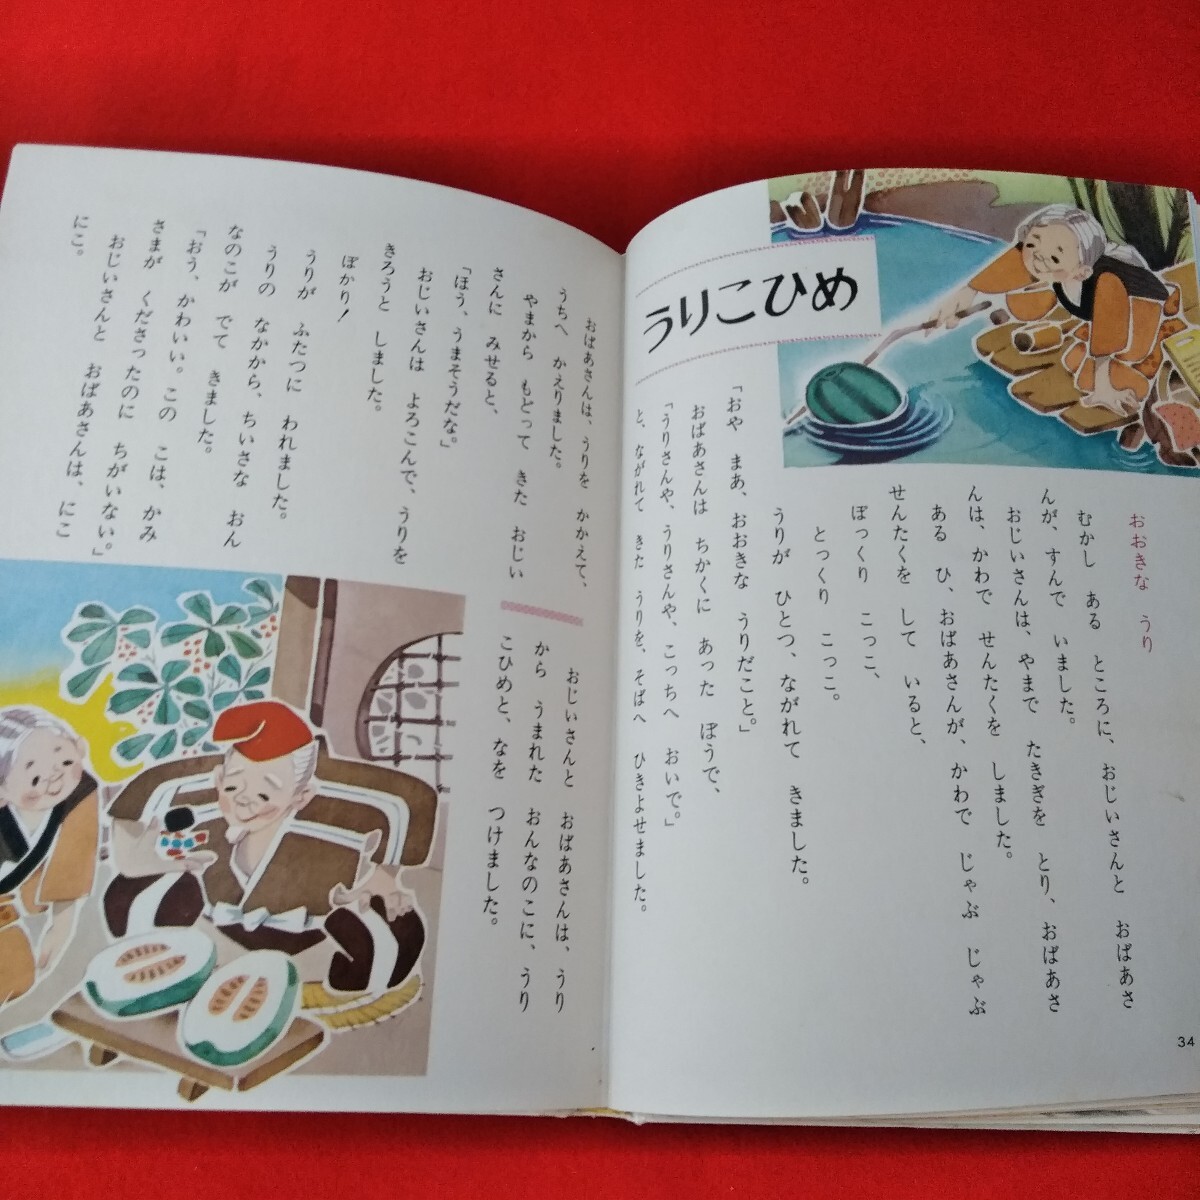 うりこひめ
おおきな うり
むかし ある ところに、おじいさんと おばあさ
んが、すんで いました。
おじいさんは、やまで たきぎを とり、おばあさ
んは、かわで せんたくを しました。
ある ひ、おばあさんが、かわで じゃぶ じゃぶ
せんたくを して いると、
ぽっくり こっこ、
とっくり こっこ。
うりが ひとつ、ながれて きました。
「おや まあ、おおきな うりだこと。」
おばあさんは ちかくに あった ぼうで、
「うりさんや、うりさんや、こっちへ おいで。」
と、ながれて きた うりを、そばへ ひきよせました。
34
おばあさんは、うりを かかえて、
うちへ かえりました。
やまから もどって きた おじい
さんに みせると、
「ほう、うまそうだな。」
おじいさんは よろこんで、うりを
きろうと しました。
ぽかり!
うりが ふたつに われました。
うりの なかから、ちいさな おん
なのこが でて きました。
「おう、かわいい。この こは、かみ
さまが くださったのに ちがいない。」
おじいさんと おばあさんは、にこ
にこ。
おじいさんと おばあさんは、うり
から うまれた おんなのこに、うり
こひめと、なを つけました。